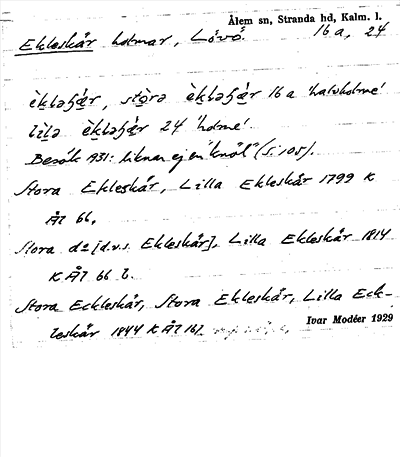 Ålem sn, Stranda hd, Kalm. l.
Ekleskär holmar, Lövö. 16 a, 24
èkləʃæ̀r, stɷ̀rə èkləʃæ̀r 16 a 'halvholme'
lìlə èkləʃæ̀r 24 'holme'.
Besök 1931: liknar ej en "knöl" (s. 105).
Stora Ekleskär, Lilla Ekleskär 1799 K
ÅZ 66,
Stora d:o [d.v.s. Ekleskär], Lilla Ekleskär 1814
K ÅZ 66 2.
Stora Eckleskär, Stora Ekleskär, Lilla Eck-
leskär 1844 K ÅZ 167
Ivar Modéer 1929